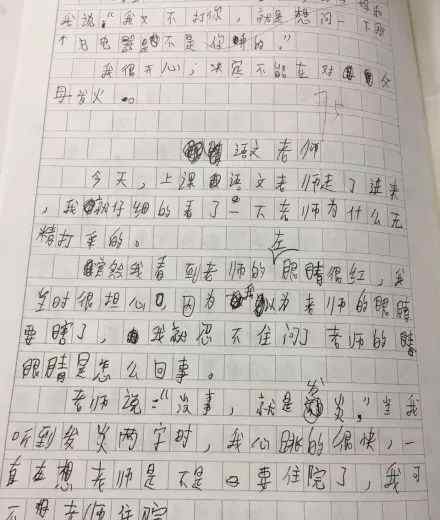 我说："我又不打你，就是想问一下那
个电是不是你弄的。"
我很开心；决定不能在对父
母发火。
语文老师
今天，上课语文老师走了进来
，我就仔细的看了一下老师为什么无
精打采的。
我看到老师的左眼睛很红，我
当时很担心，因为我以为老师的眼睛
要瞎了，我就忍不住问了老师的
眼睛是怎么回事。
老师说："没事，就是发炎。"当我
听到发炎两字时，我心跳的很快，一
直在想老师是不是要住院了，我可
不想老师住院